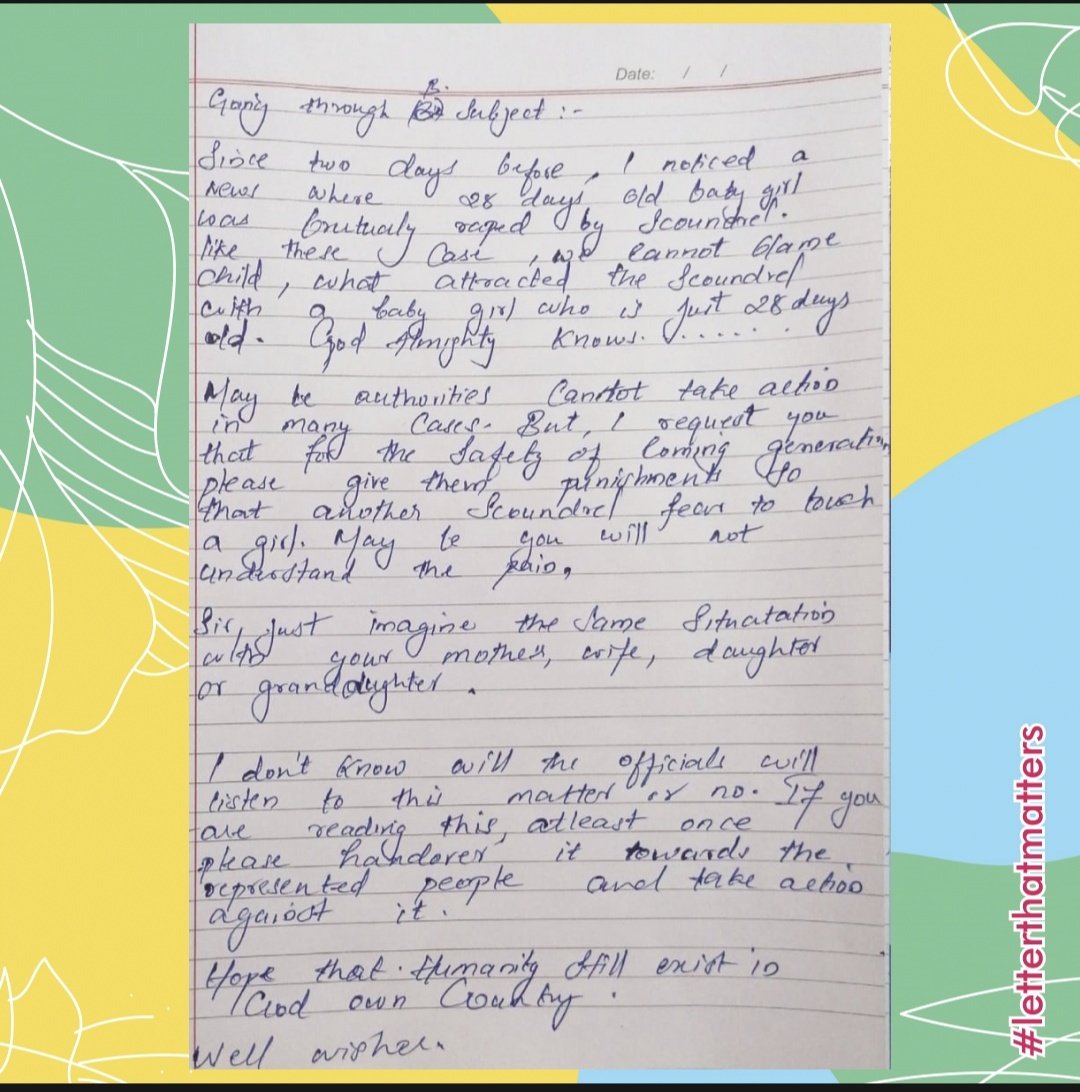 Date: / /
Going through B. Subject :-
Since two days before, I noticed a
News where 28 days old baby girl
was brutualy raped by Scoundrel.
like these Case, we cannot blame
child, what attracted the Scoundrel
with a baby girl who is just 28 days
old. God Almighty knows......
May be authorities Cannot take action
in many Cases. But, I request you
that for the Safety of Coming generation
please give them punishments so
that another Scoundrel fear to touch
a girl. May be you will not
understand the pain,
Sir, just imagine the Same Situatation
with your mother, wife, daughter
or granddaughter.
I don't know will the officials will
listen to this matter or no. If you
are reading this, atleast once
please handover it towards the
represented people and take action
against it.
Hope that Humanity still exist in
God own Country.
Well wisher.
#letterthatmatters